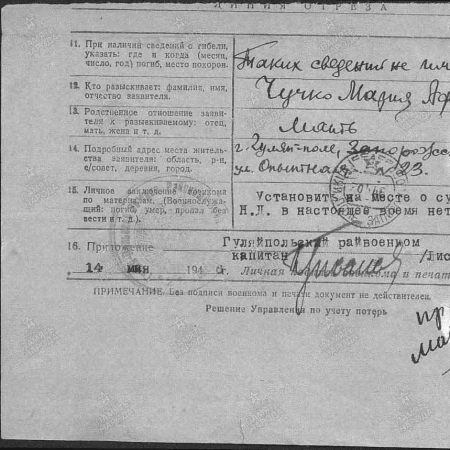 ЛИНИЯ ОТРЕЗА
11. При наличии сведений о гибели, указать: где и когда (месяц, число, год) погиб, место похорон.
Таких сведений не
12. Кто разыскивает: фамилия, имя, отчество заявителя.
Чучко Мария
13. Родственное отношение заявителя к разыскиваемому: отец, мать, жена и т. д.
Мать
14. Подробный адрес места жительства заявителя: область, р-н, с/совет, деревня, город.
г. Гуляй-поле,
ул. Опытная № 23.
15. Личное заключение военкома по материалам. (Военнослужащий: погиб, умер, пропал без вести и т. д.).
Установить на месте о су
Н.Д. в настоящее время нет
16. Приложение
Гуляйпольский райвоенком
капитан /Лис
14 мая 194 г. Личная подпись военкома и печат
ПРИМЕЧАНИЕ. Без подписи военкома и печати документ не действителен.
Решение Управления по учету потерь